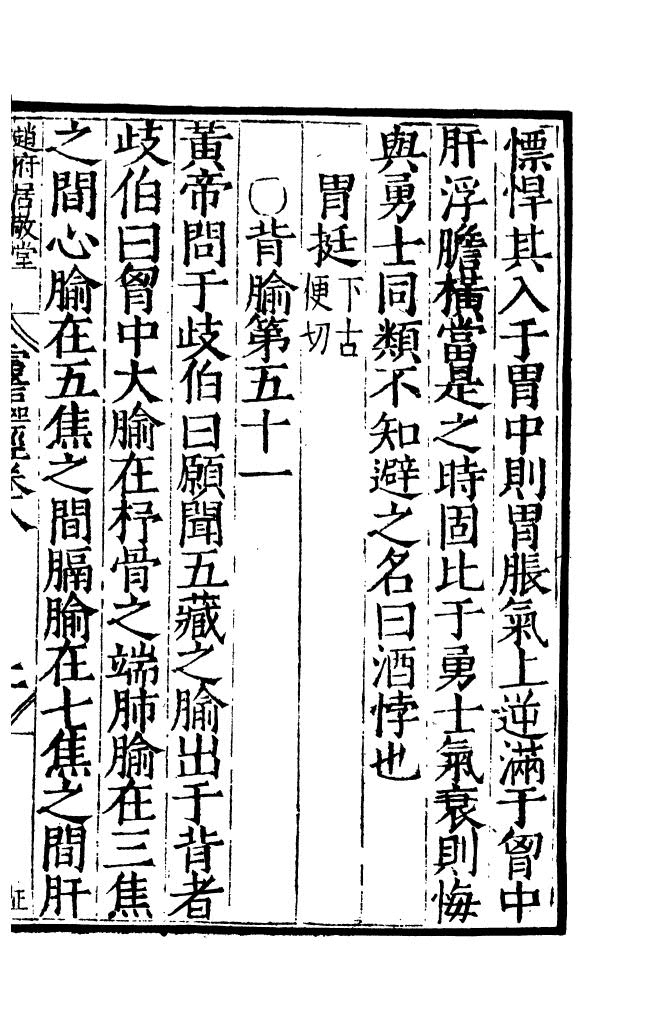 慓悍其入于胃中則胃脹氣上逆滿于胷中
肝浮膽橫當是之時固比于勇士氣衰則悔
與勇士同類不知避之名曰酒悖也
胃挺下古便切
〇背腧第五十一
黃帝問于歧伯曰願聞五藏之腧出于背者
歧伯曰胷中大腧在杼骨之端肺腧在三焦
之間心腧在五焦之間膈腧在七焦之間肝
趙府居敬堂
靈樞經卷八